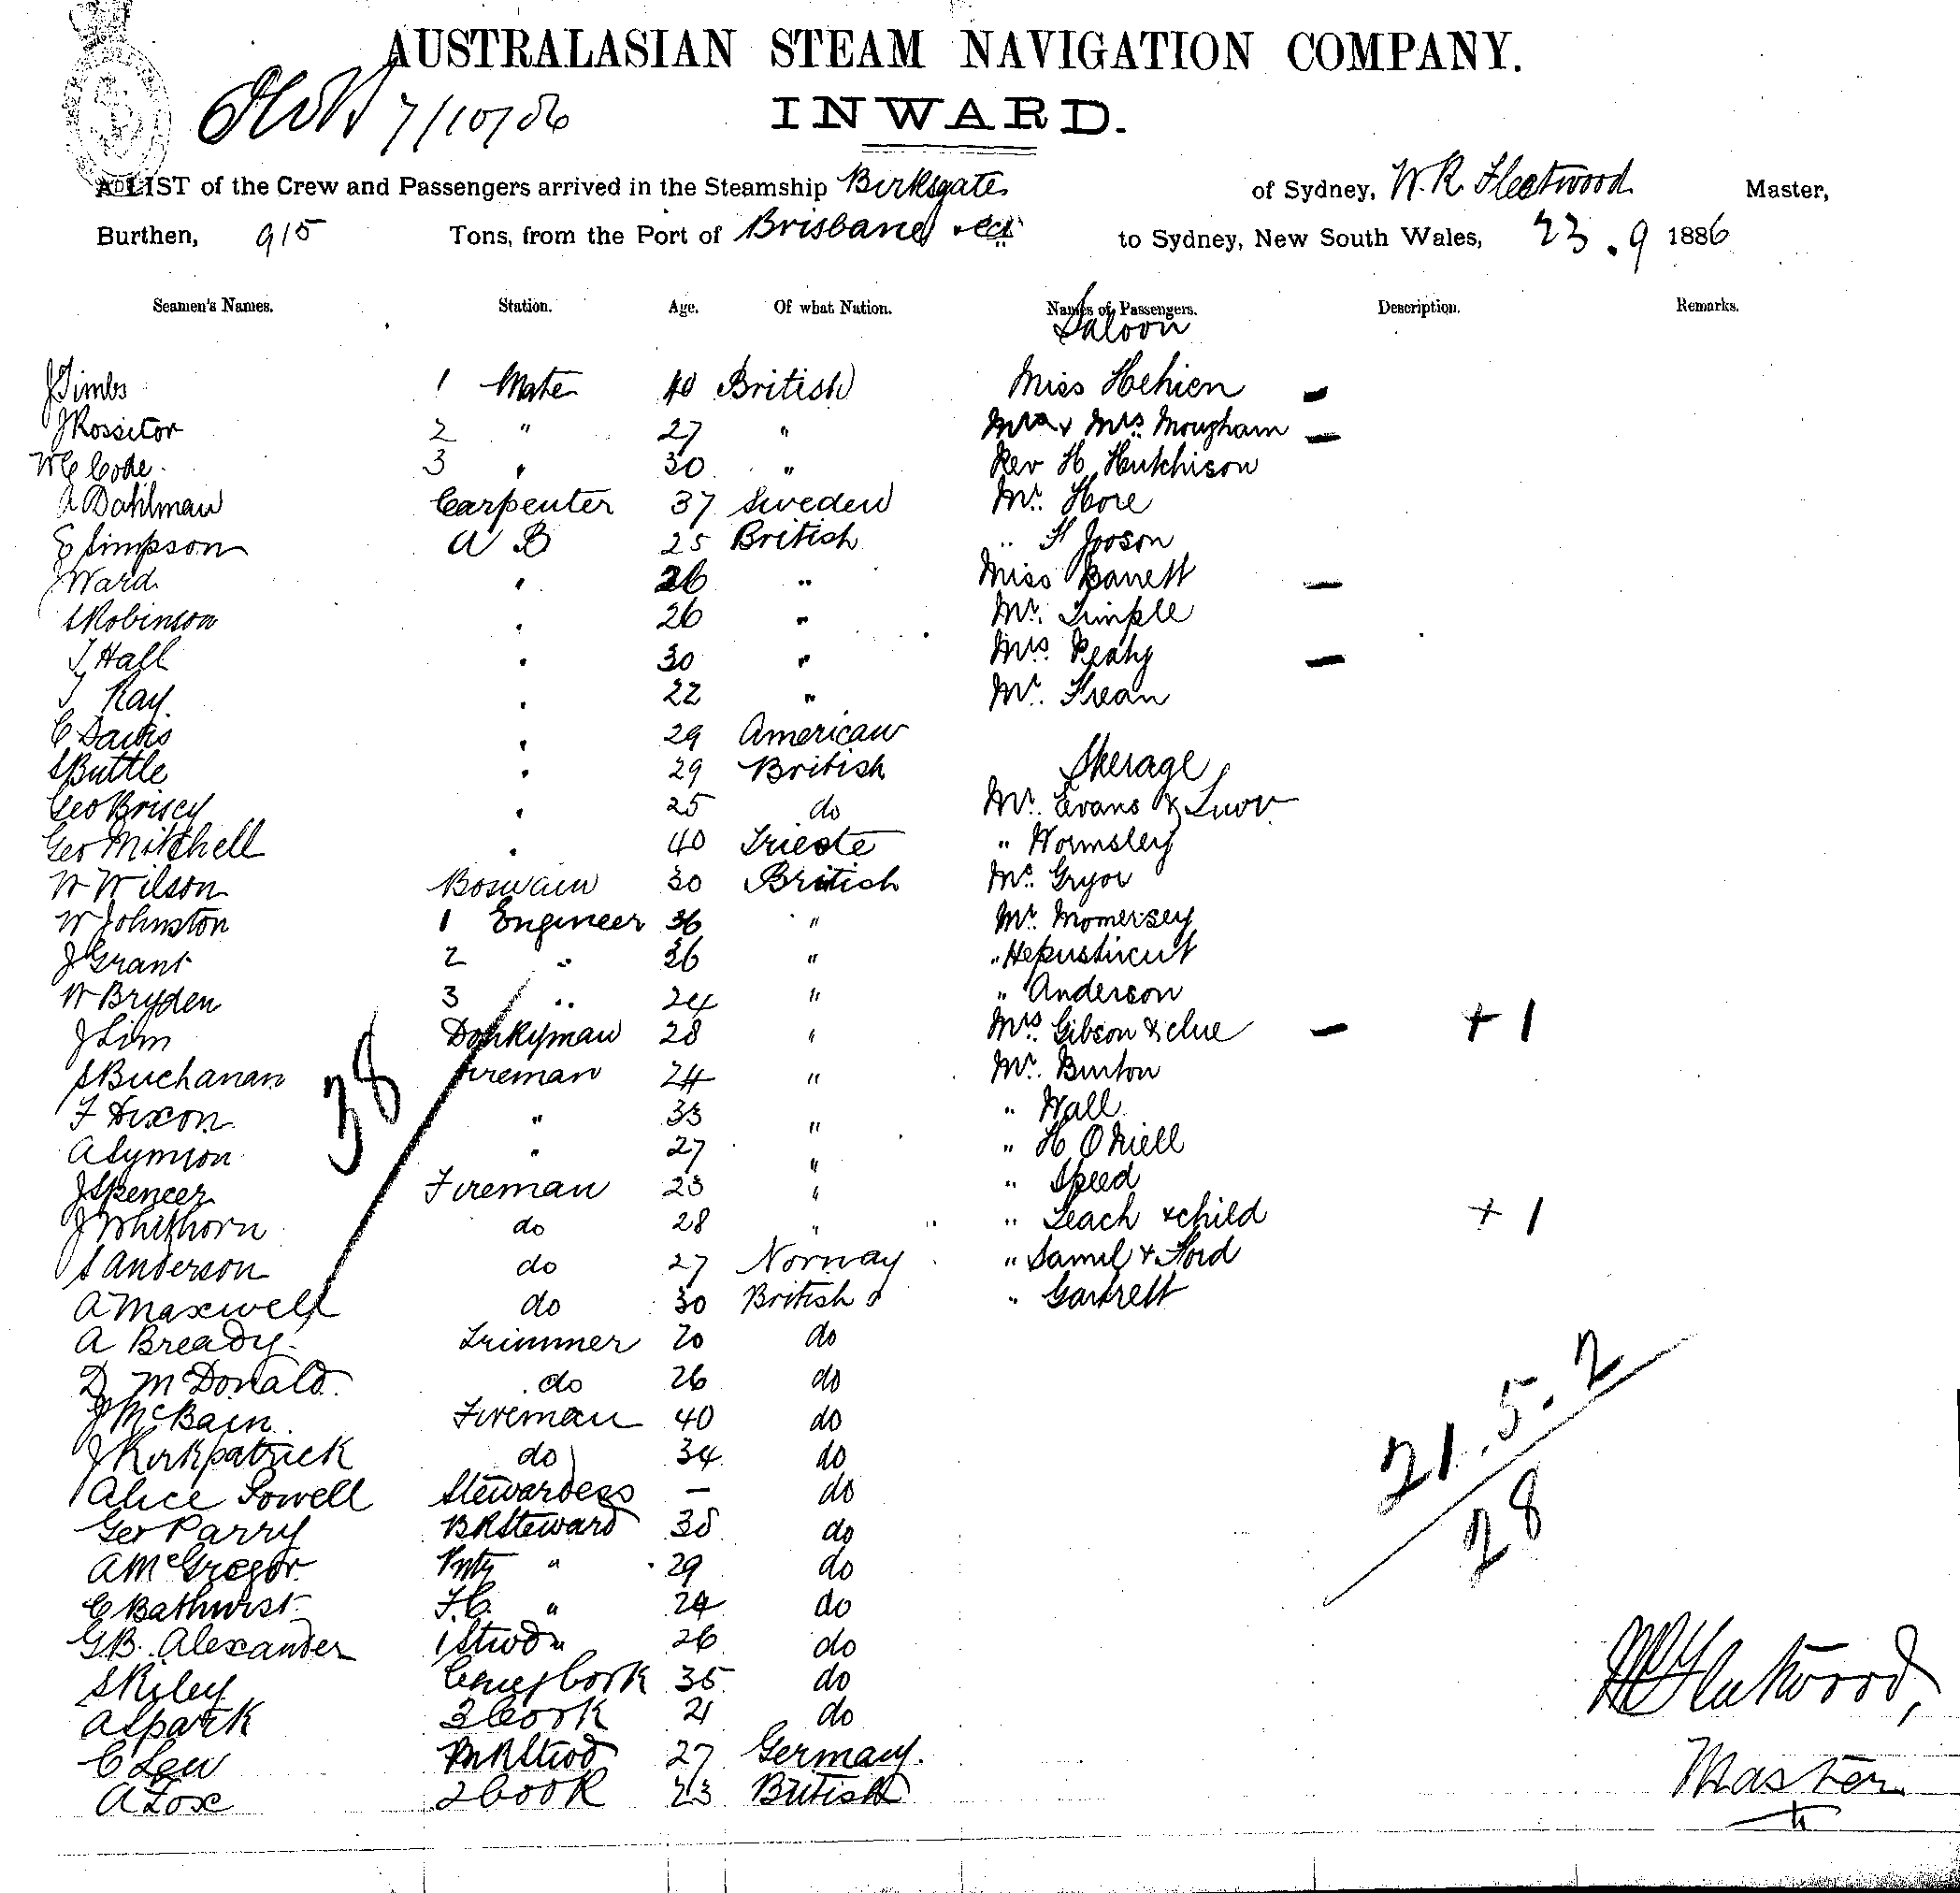 AUSTRALASIAN STEAM NAVIGATION COMPANY.
7/10/86
INWARD.
A LIST of the Crew and Passengers arrived in the Steamship Birksgate of Sydney, W. R. Fleetwood Master,
Burthen, 915 Tons, from the Port of Brisbane to Sydney, New South Wales, 23.9 1886
Seamen's Names. Station. Age. Of what Nation. Names of Passengers. Description. Remarks.
Saloon
J Timbs 1 Mate 40 British Miss
J Rossitor 2 " 27 " Mr & Mrs Mougham
W C Code 3 " 30 " Rev H Hutchison
A Dahlman Carpenter 37 Sweden Mr. Hore
E Simpson A B 25 British "
J Ward " 26 " Miss Barrett
S Robinson " 26 " Mr. Timple
T Hall " 30 " Mrs.
T Ray " 22 " Mr. Frean
C Davis " 29 American
S Buttle " 29 British Sterage
Geo Briscy " 25 do Mr. Evans &
Geo Mitchell " 40 Trieste " Wormsley
W Wilson Boswain 30 British Mr. Gryor
W Johnston 1 Engineer 36 " Mr. Momersey
J Grant 2 " 26 " "
W Bryden 3 " 24 " " Anderson
J Sim Donkyman 28 " Mrs. Gibson & +1
S Buchanan Fireman 24 " Mr. Burton
F Dixon " 33 " " Wall
A Symion " 27 " " H O Niell
J Spencer Fireman 23 " " Speed
J Whithorn do 28 " " Leach & child +1
S Anderson do 27 Norway " Samul & Ford
A Maxwell do 30 British " Gartrett
A Bready Trimmer 20 do
D McDonald do 26 do
J McBain Fireman 40 do
J Kirkpatrick do 34 do
Alice Sowell Stewardess – do
Geo Parry BRSteward 38 do
A McGregor Pnty " 29 do
C Bathurst F.C. " 24 do
G.B. Alexander 1 Stwd " 26 do
S Riley 35 do
A Spark 3 Cook 21 do
C Law 27 Germany.
A Fox 2 Cook 23 British
38
21.5.2
28
W R Fleetwood,
Master